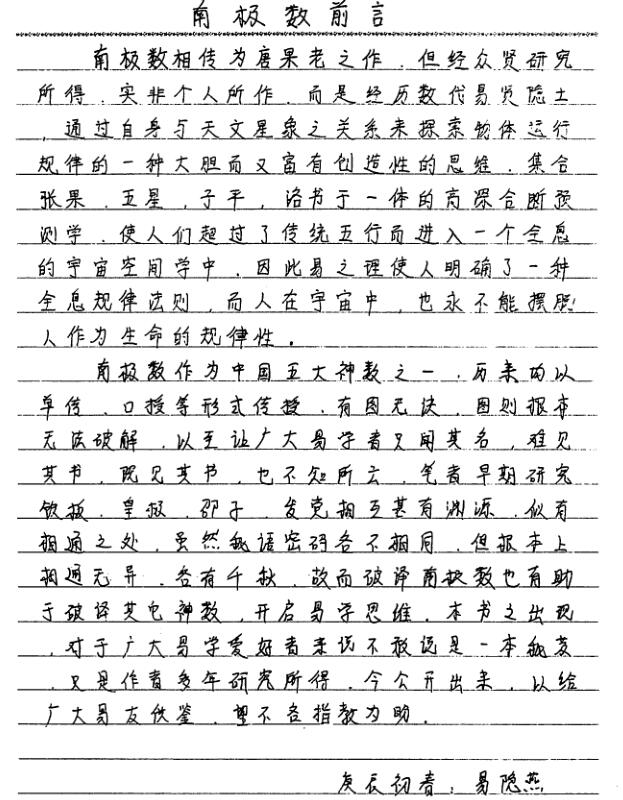 南极数前言
南极数相传为唐果老之作，但经众贤研究
所得，实非个人所作，而是经历数代易贤隐士
，通过自身与天文星象之关系来探索物体运行
规律的一种大胆而又富有创造性的思维，集合
张果，五星，子平，洛书于一体的高深合断预
测学，使人们超过了传统五行而进入一个全息
的宇宙空间学中，因此易之理使人明确了一种
全息规律法则，而人在宇宙中，也永不能摆脱
人作为生命的规律性。
南极数作为中国五大神数之一，历来均以
单传，口授等形式传授，有图无诀，图则根本
无法破解，以至让广大易学者只闻其名，难见
其书，既见其书，也不知所云，笔者早期研究
铁板，皇极，邵子，发觉相互甚有渊源，似有
相通之处，虽然秘语密码各不相同，但根本上
相通无异，各有千秋，故而破译南极数也有助
于破译其它神数，开启易学思维，本书之出现
，对于广大易学爱好者来说不敢说是一本秘笈
，只是作者多年研究所得，今公开出来，以给
广大易友供鉴，望不吝指教为助。
庚辰初春：易隐燕